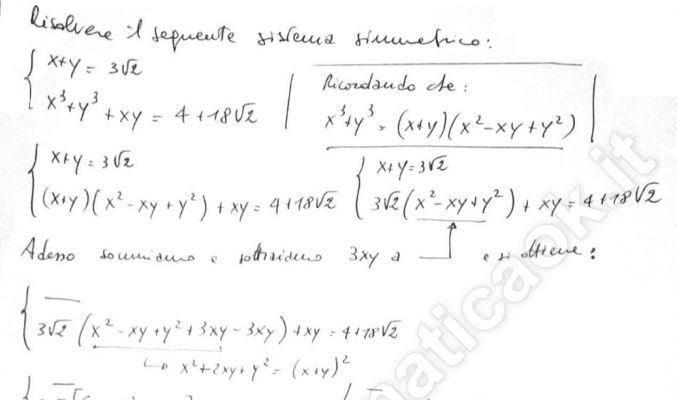 Risolvere il seguente sistema simmetrico:
{ x+y = 3√2
x³+y³+xy = 4+18√2
Ricordando che:
x³+y³ = (x+y)(x²-xy+y²)
{ x+y = 3√2
(x+y)(x²-xy+y²)+xy = 4+18√2
{ x+y = 3√2
3√2(x²-xy+y²)+xy = 4+18√2
Adesso sommiamo e sottraiamo 3xy a e si ottiene:
{ —
3√2(x²-xy+y²+3xy-3xy)+xy = 4+18√2
↳ x²+2xy+y² = (x+y)²
maticaok.it